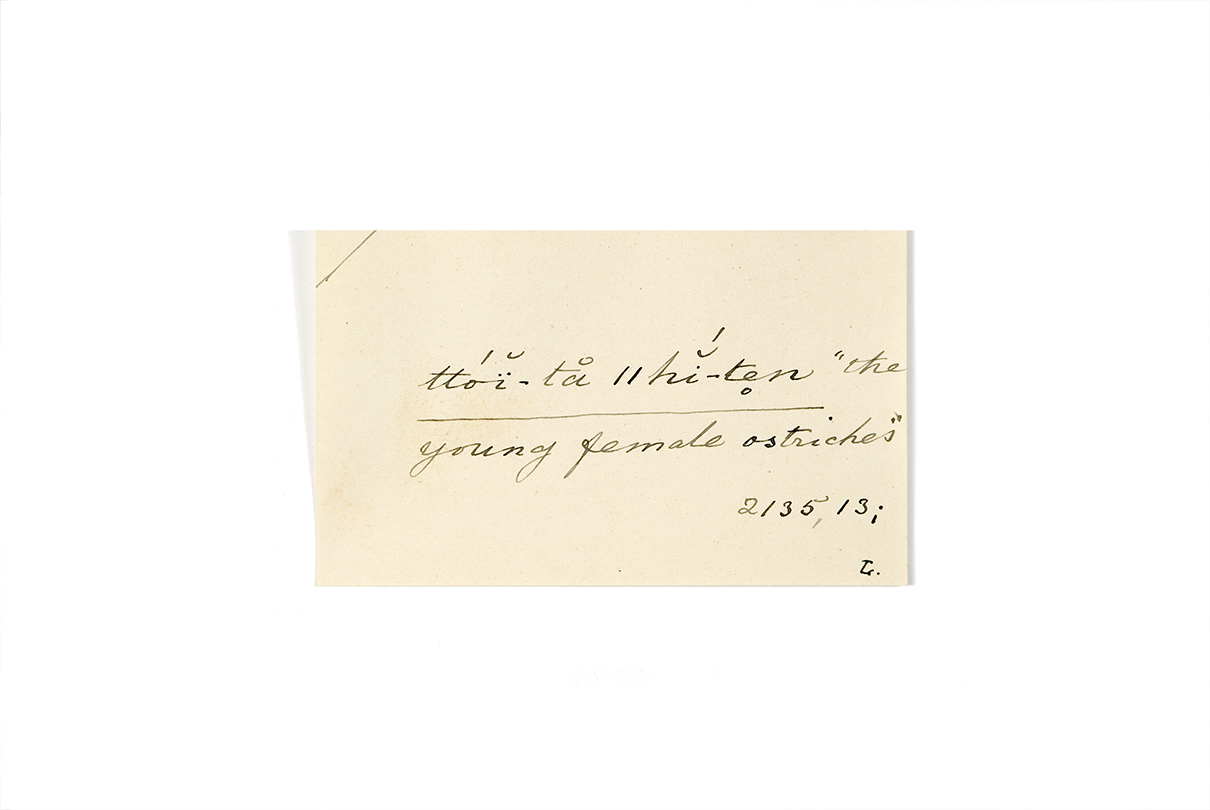 ttóĭ-tå ǁhĭ́-tẹn "the
young female ostriches"
2135, 13;
L.